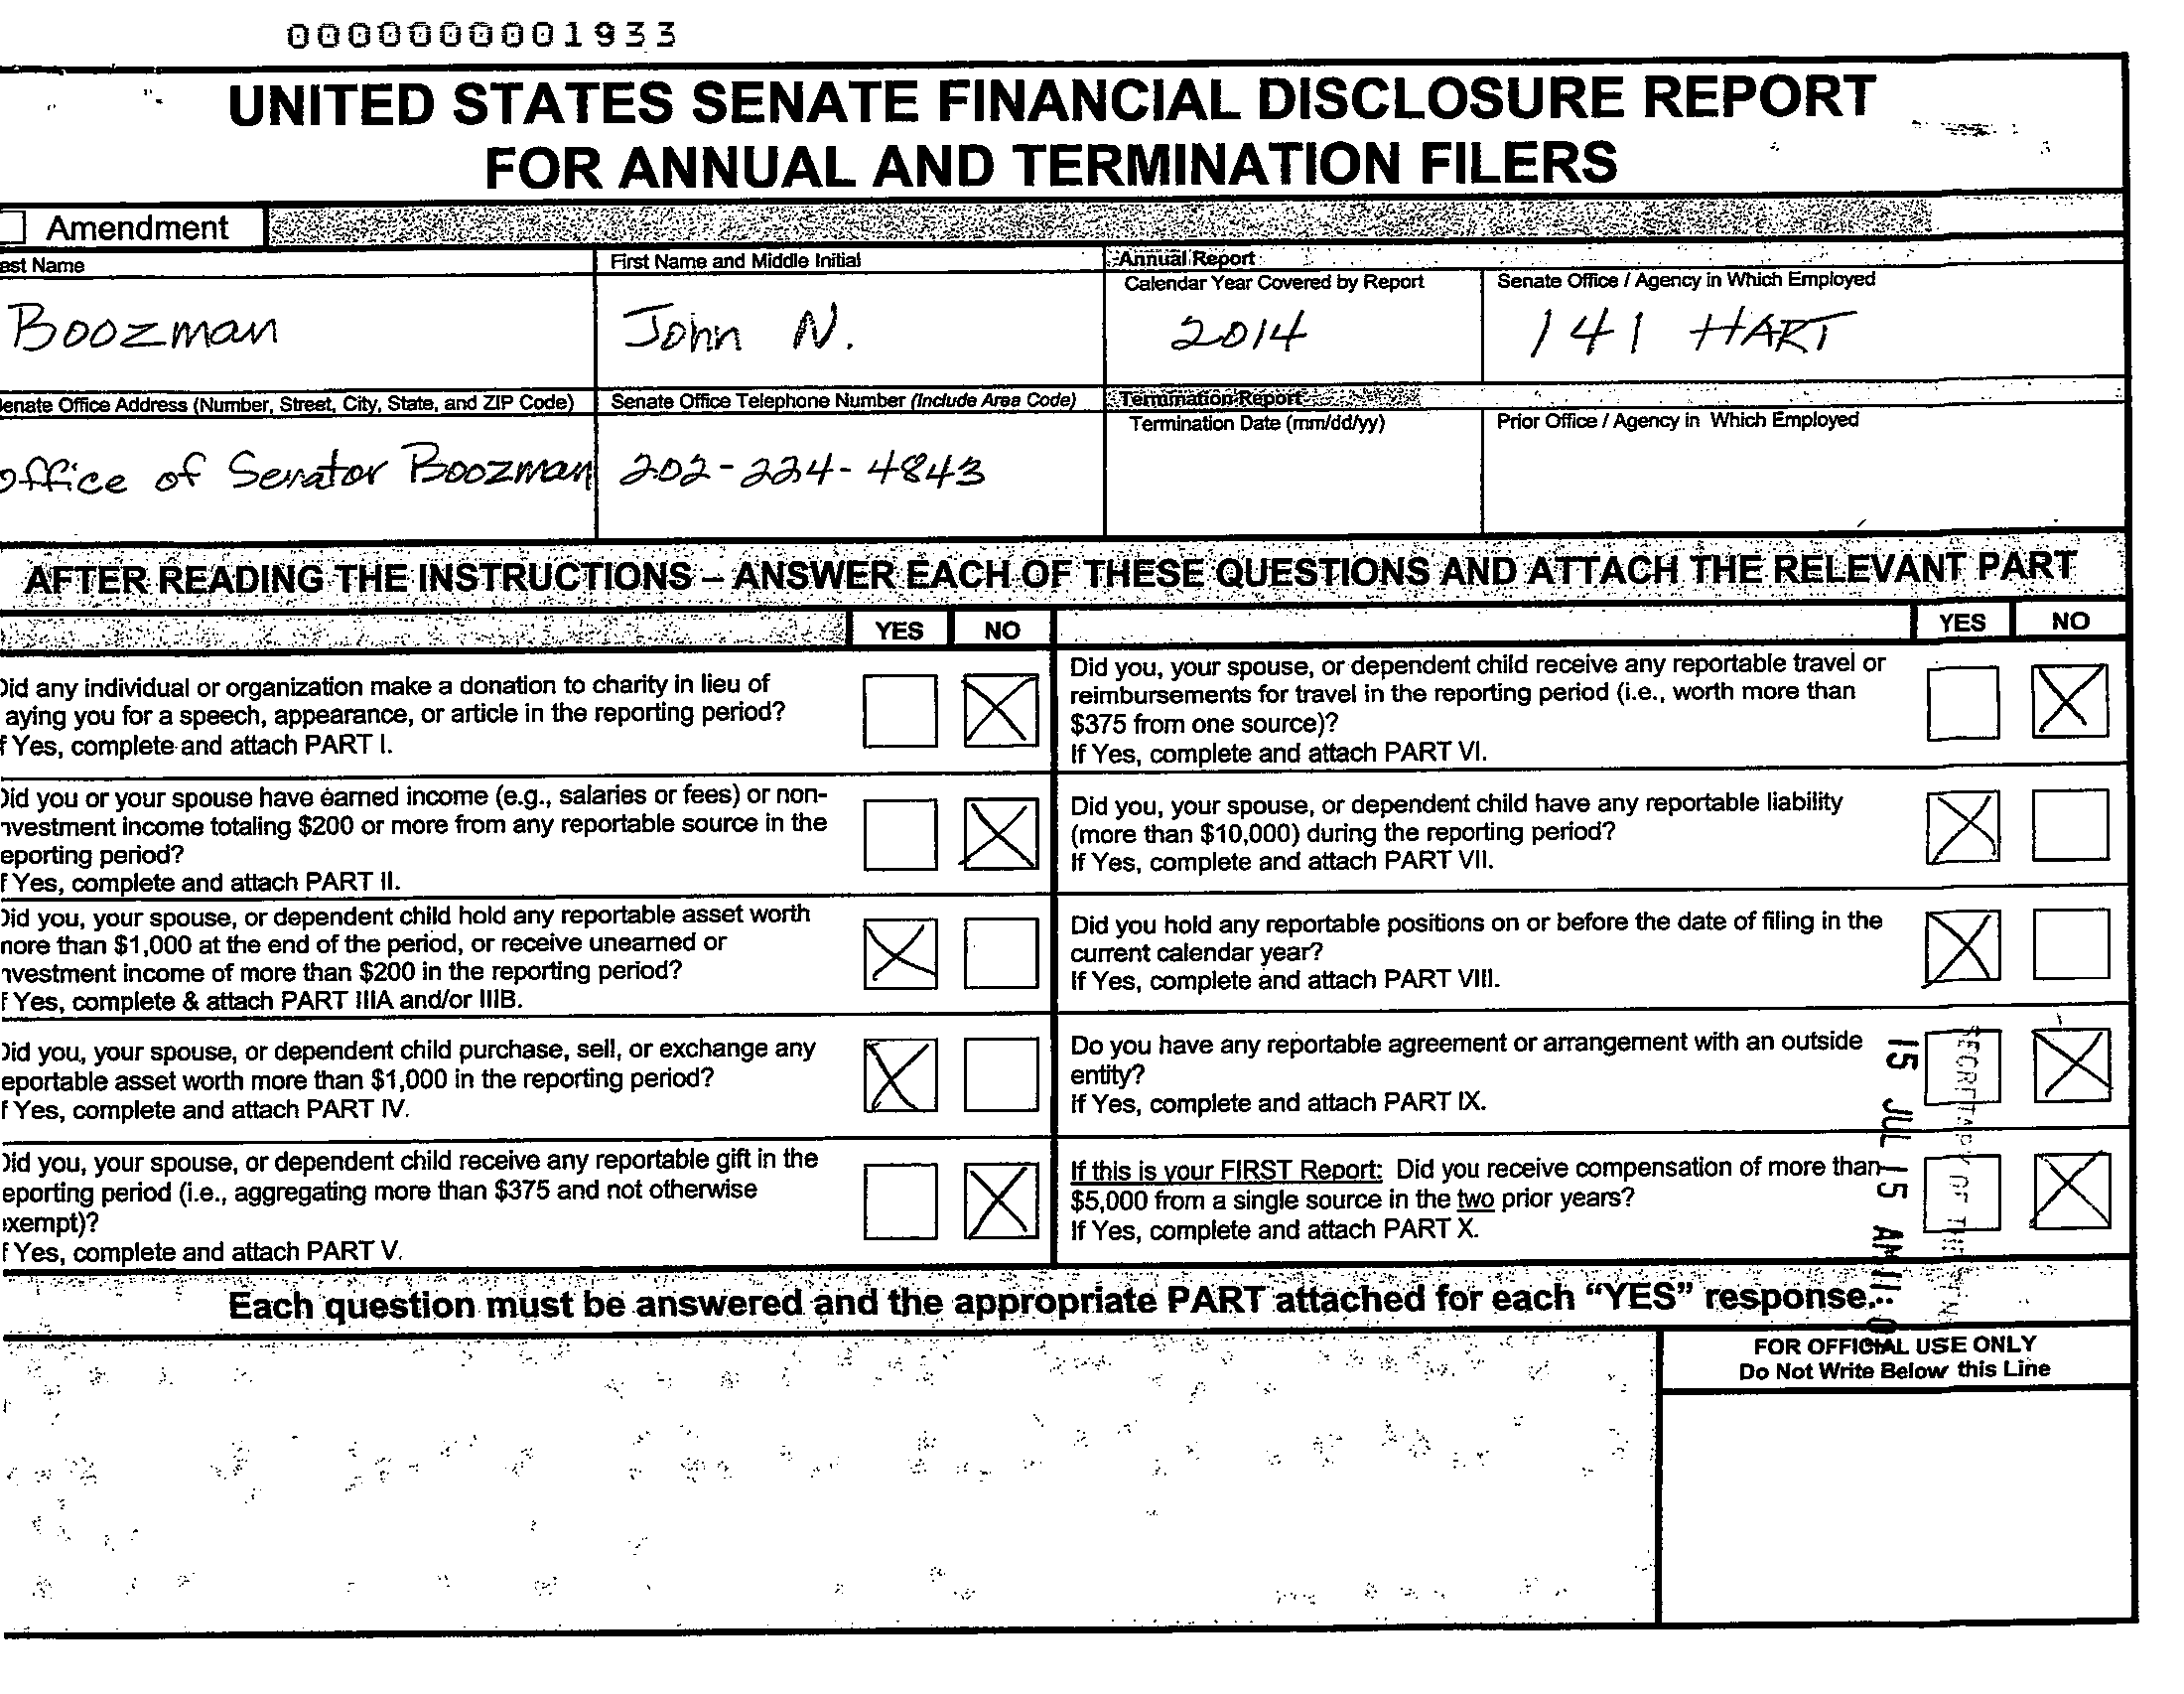 0000000001933
UNITED STATES SENATE FINANCIAL DISCLOSURE REPORT
FOR ANNUAL AND TERMINATION FILERS
Amendment
ast Name
First Name and Middle Initial
Annual Report
Calendar Year Covered by Report
Senate Office / Agency in Which Employed
Boozman
John N.
2014
141 HART
enate Office Address (Number, Street, City, State, and ZIP Code)
Senate Office Telephone Number (Include Area Code)
Termination Report
Termination Date (mm/dd/yy)
Prior Office / Agency in Which Employed
office of Senator Boozman
202-224-4843
AFTER READING THE INSTRUCTIONS – ANSWER EACH OF THESE QUESTIONS AND ATTACH THE RELEVANT PART
YES NO
Did any individual or organization make a donation to charity in lieu of
aying you for a speech, appearance, or article in the reporting period?
f Yes, complete and attach PART I.
Did you or your spouse have earned income (e.g., salaries or fees) or non-
nvestment income totaling $200 or more from any reportable source in the
eporting period?
f Yes, complete and attach PART II.
Did you, your spouse, or dependent child hold any reportable asset worth
more than $1,000 at the end of the period, or receive unearned or
nvestment income of more than $200 in the reporting period?
f Yes, complete & attach PART IIIA and/or IIIB.
Did you, your spouse, or dependent child purchase, sell, or exchange any
eportable asset worth more than $1,000 in the reporting period?
f Yes, complete and attach PART IV.
Did you, your spouse, or dependent child receive any reportable gift in the
eporting period (i.e., aggregating more than $375 and not otherwise
exempt)?
f Yes, complete and attach PART V.
YES NO
Did you, your spouse, or dependent child receive any reportable travel or
reimbursements for travel in the reporting period (i.e., worth more than
$375 from one source)?
If Yes, complete and attach PART VI.
Did you, your spouse, or dependent child have any reportable liability
(more than $10,000) during the reporting period?
If Yes, complete and attach PART VII.
Did you hold any reportable positions on or before the date of filing in the
current calendar year?
If Yes, complete and attach PART VIII.
Do you have any reportable agreement or arrangement with an outside
entity?
If Yes, complete and attach PART IX.
If this is your FIRST Report: Did you receive compensation of more than
$5,000 from a single source in the two prior years?
If Yes, complete and attach PART X.
SECRETARY OF THE
15 JUL 15 AM 11
Each question must be answered and the appropriate PART attached for each “YES” response.
FOR OFFICIAL USE ONLY
Do Not Write Below this Line